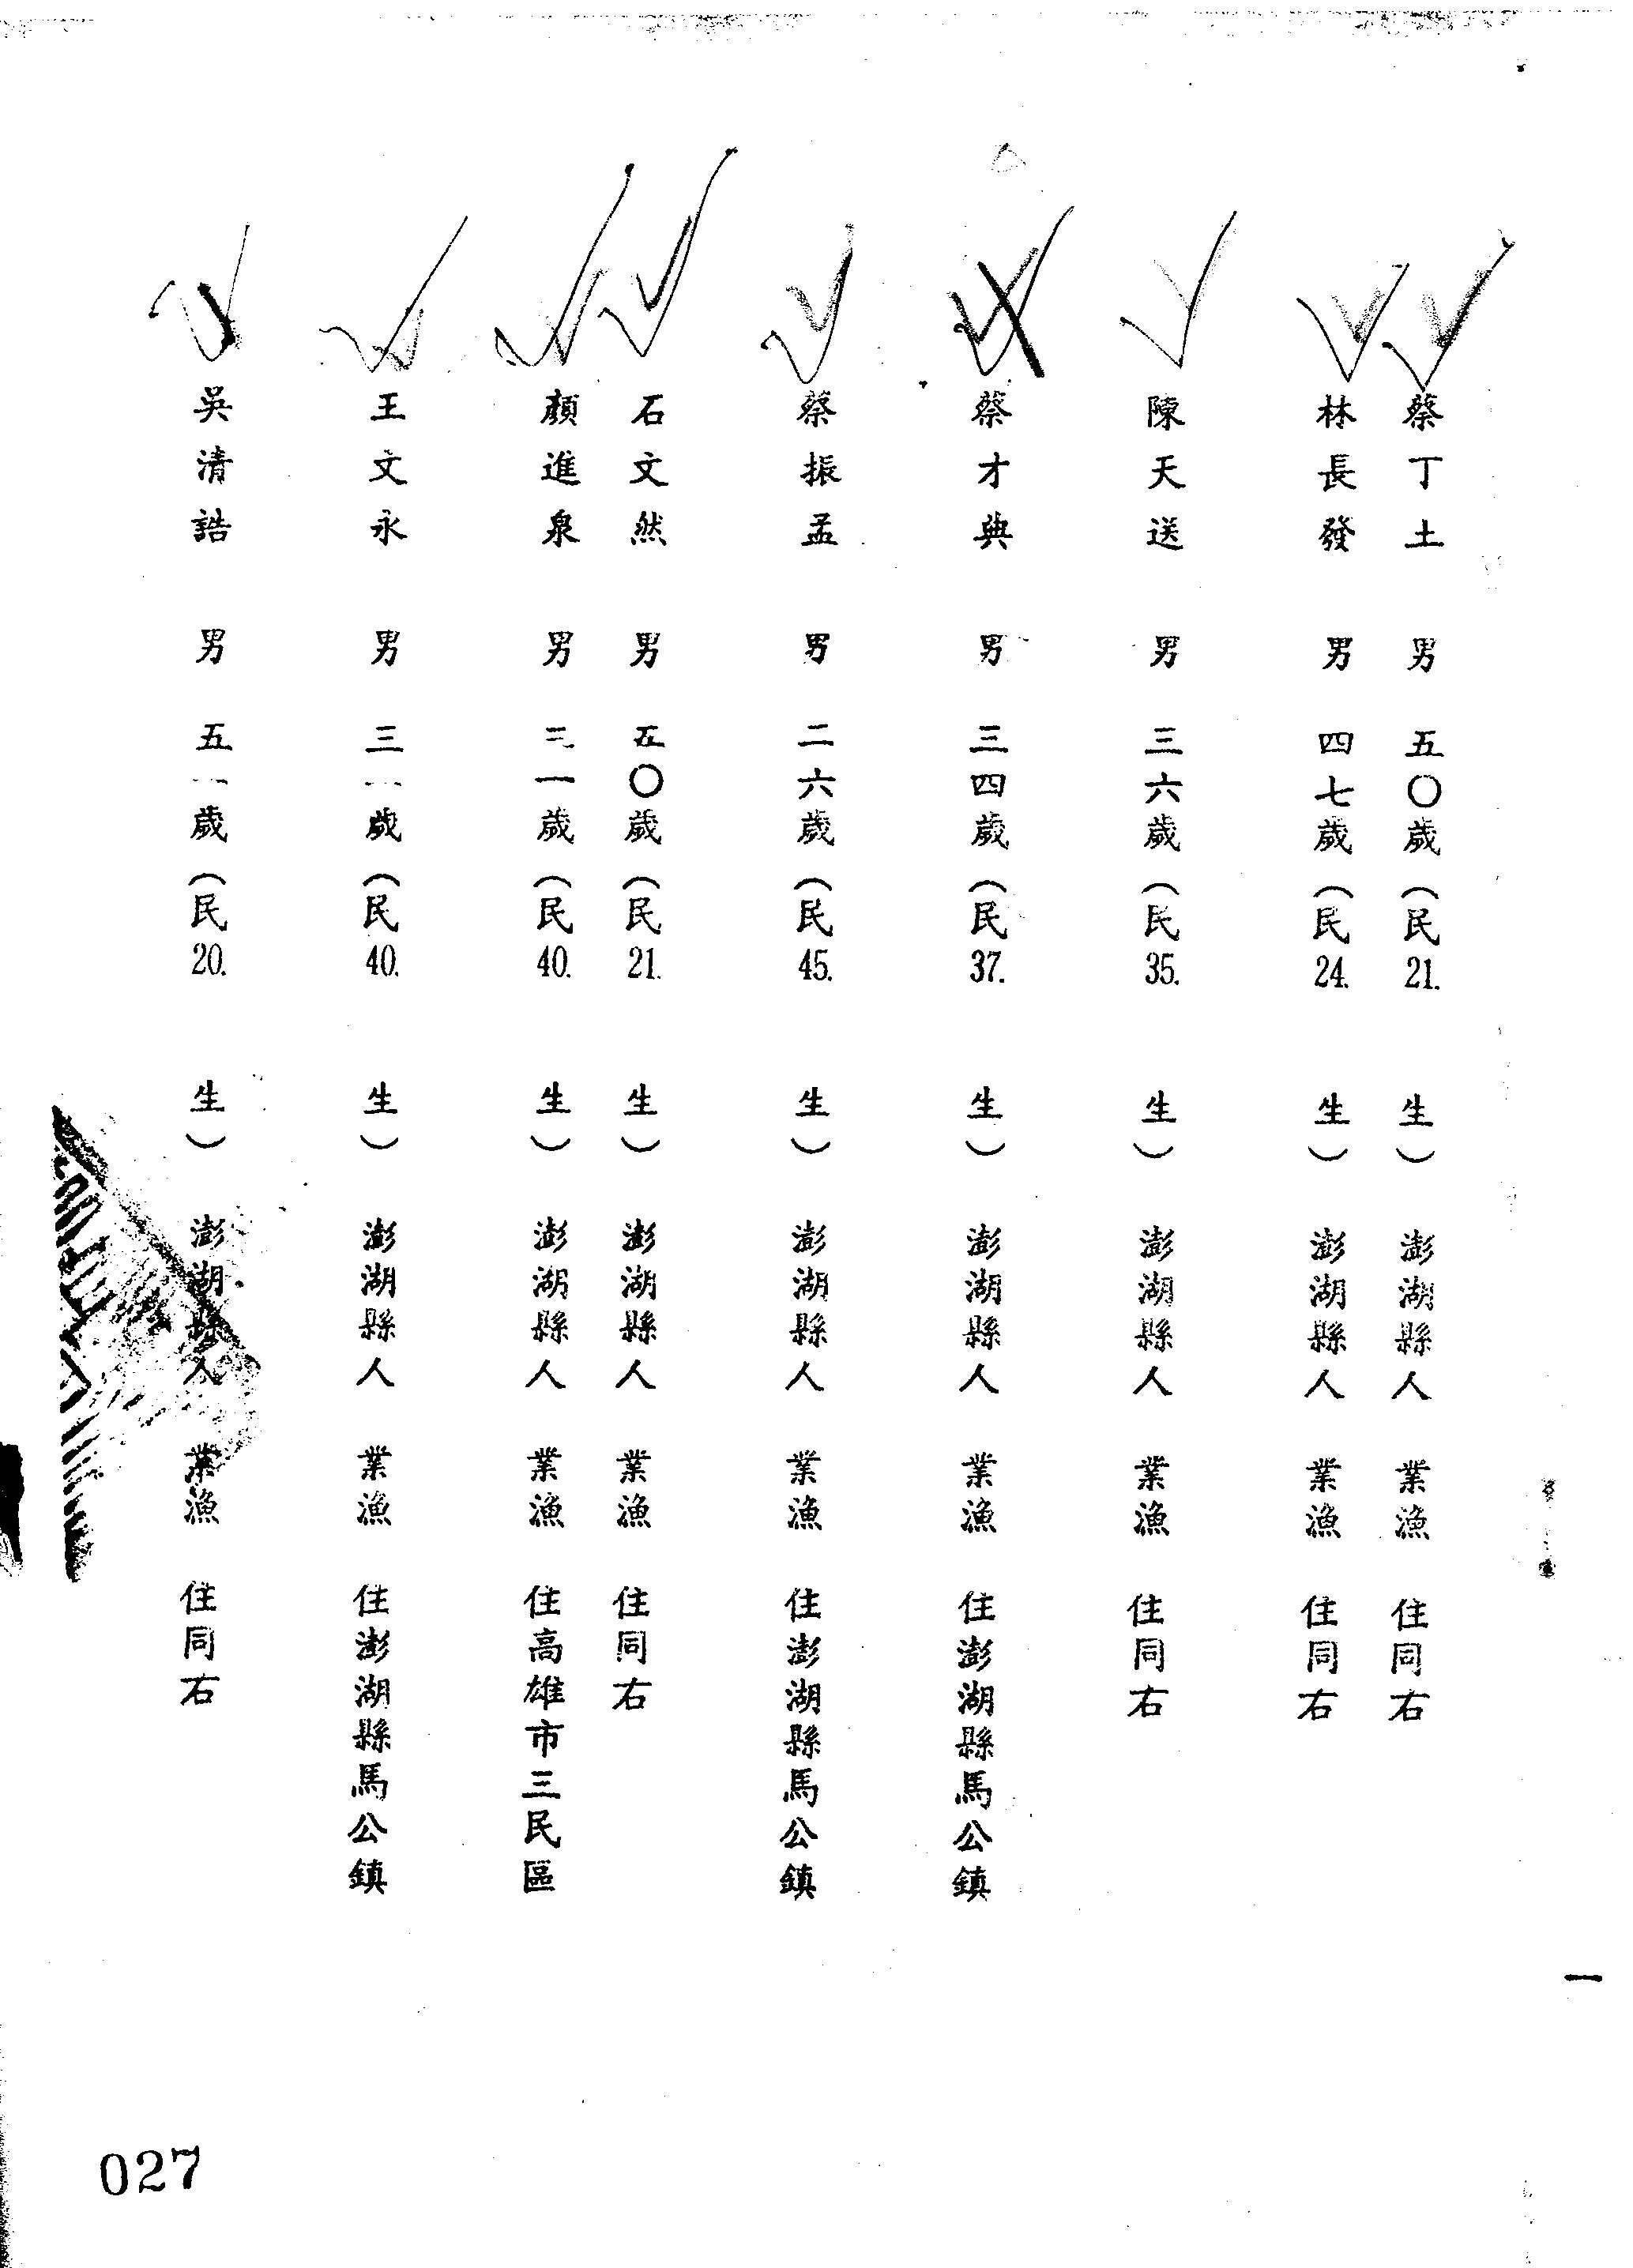 蔡丁土 男 五〇歲（民21. 生） 澎湖縣人 業漁 住同右
林長發 男 四七歲（民24. 生） 澎湖縣人 業漁 住同右
陳天送 男 三六歲（民35. 生） 澎湖縣人 業漁 住同右
蔡才典 男 三四歲（民37. 生） 澎湖縣人 業漁 住澎湖縣馬公鎮
蔡振孟 男 二六歲（民45. 生） 澎湖縣人 業漁 住澎湖縣馬公鎮
石文然 男 五〇歲（民21. 生） 澎湖縣人 業漁 住同右
顏進泉 男 三一歲（民40. 生） 澎湖縣人 業漁 住高雄市三民區
王文永 男 三一歲（民40. 生） 澎湖縣人 業漁 住澎湖縣馬公鎮
吳清誥 男 五一歲（民20. 生） 澎湖縣人 業漁 住同右
一
027